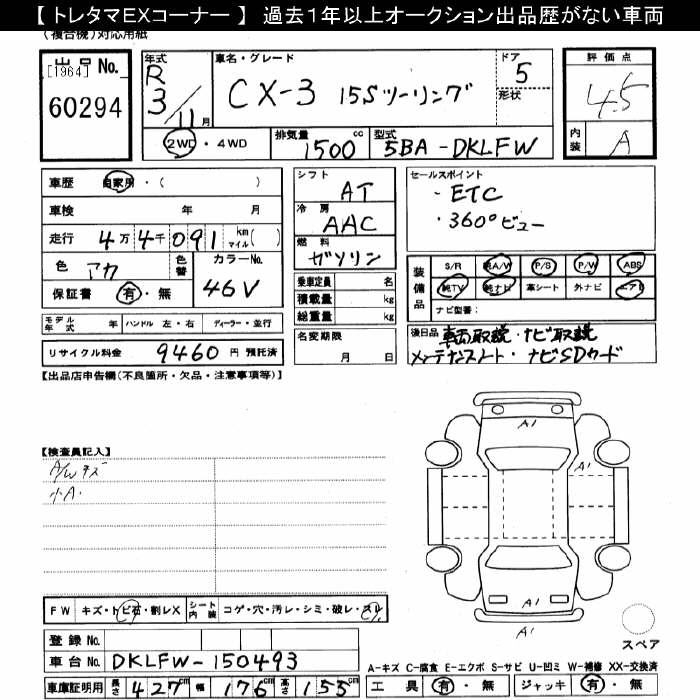 【 トレタマEXコーナー 】 過去１年以上オークション出品歴がない車両
(複合機)対応用紙
出品 No.
[1964]
60294
年式
R 3/11月
車名・グレード
CX-3 15Sツーリング
ドア
5
形状
評価点
4.5
内装
A
2WD・4WD
排気量
1500 cc
型式
5BA-DKLFW
車歴 自家用・( )
車検 年 月
走行 4万4千091 km マイル( )
色 アカ
色替
カラーNo.
46V
保証書 有・無
モデル年式 年 ハンドル 左・右 ディーラー・並行
リサイクル料金 9460 円 預託済
シフト
AT
冷房
AAC
燃料
ガソリン
乗車定員 名
積載量 kg
総重量 kg
名変期限
月 日
セールスポイント
・ETC
・360°ビュー
装備品
S/R 純A/W P/S P/W ABS
純TV 純ナビ 革シート 外ナビ エアB
ナビ型番:
後日品
車両取説・ナビ取説
メンテナンスノート・ナビSDカード
【出品店申告欄(不良箇所・欠品・注意事項等)】
【検査員記入】
A/Wキズ
小A.
A1
A1
A1
A1
スペア
FW キズ・トビ石・割レX シート内装 コゲ・穴・汚レ・シミ・破レ・スレ
登録 No.
車台 No. DKLFW-150493
車庫証明用 長さ 427cm 幅 176cm 高さ 155cm
A-キズ C-腐食 E-エクボ S-サビ U-凹ミ W-補修 XX-交換済
工具 有・無 ジャッキ 有・無